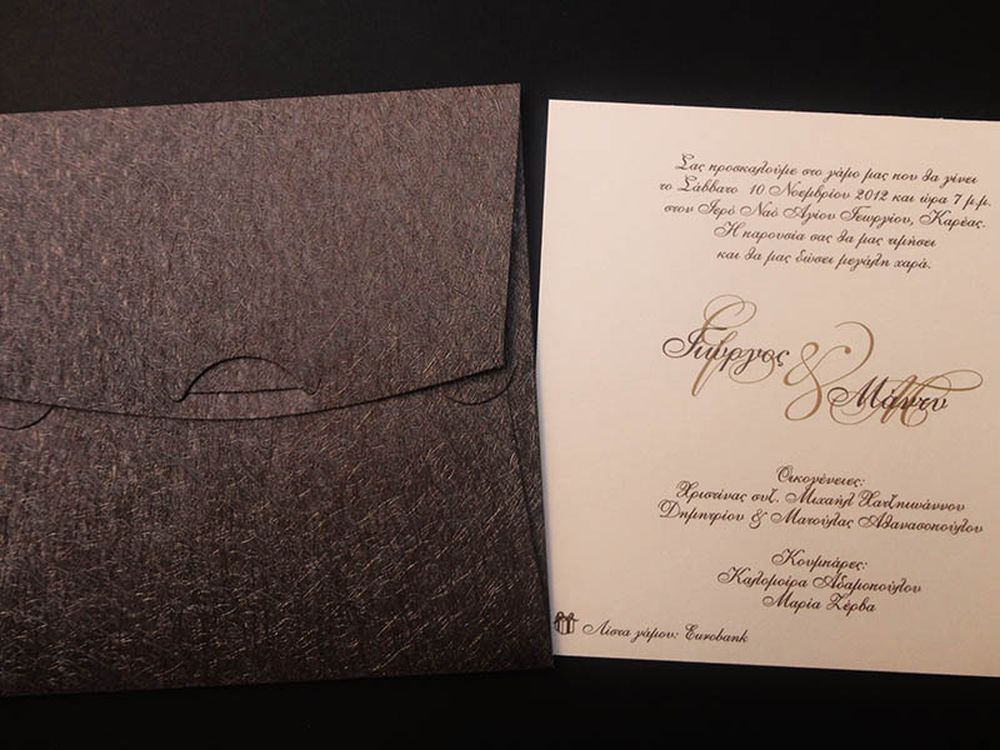 Σας προσκαλούμε στο γάμο μας που θα γίνει
το Σάββατο 10 Νοεμβρίου 2012 και ώρα 7 μ.μ.
στον Ιερό Ναό Αγίου Γεωργίου, Καρέας.
Η παρουσία σας θα μας τιμήσει
και θα μας δώσει μεγάλη χαρά.
Γιώργος
&
Μάντυ
Οικογένειες:
Χριστίνας συζ. Μιχαήλ Χατζηιωάννου
Δημητρίου & Ματούλας Αθανασοπούλου
Κουμπάρες:
Καλομοίρα Αδαμοπούλου
Μαρία Ζέρβα
Λίστα γάμου: Eurobank